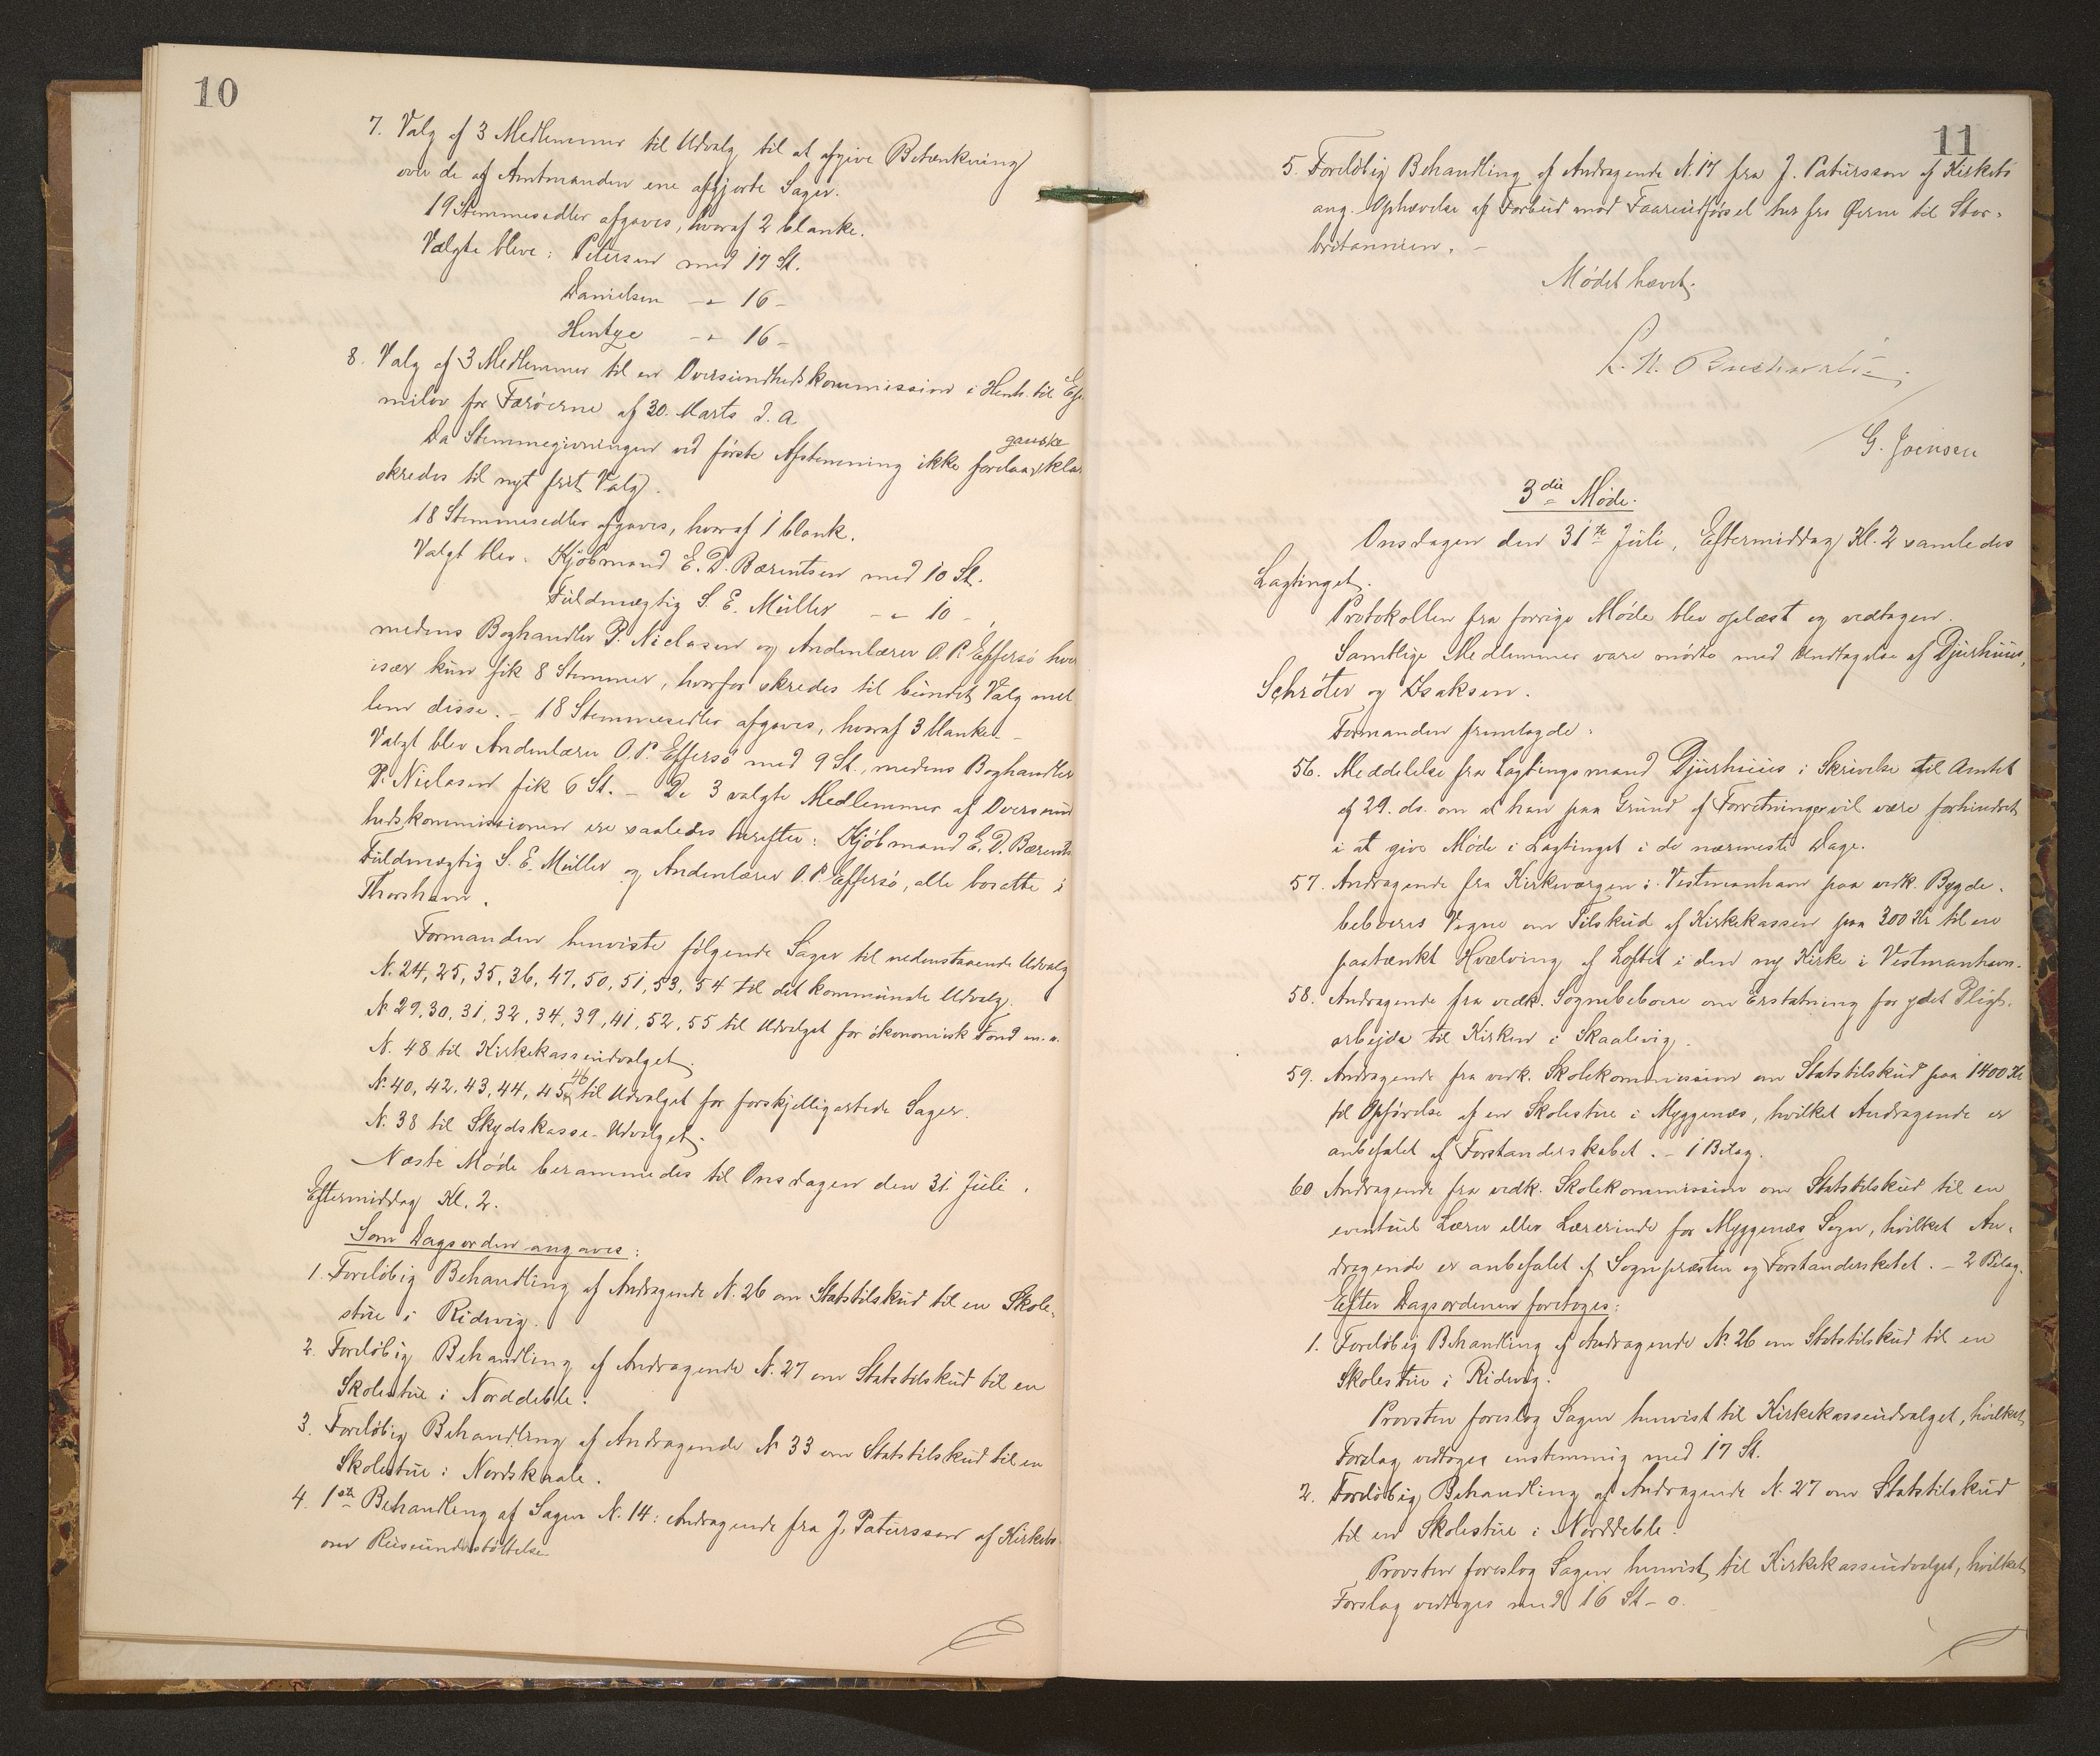 10
7. Valg af 3 Medlemmer til Udvalg til at afgive Betænkning
over de af Amtmanden ene afgjorte Sager.
19 Stemmesedler afgaves, hvoraf 2 blanke.
Valgte bleve: Petersen med 17 St.
Danielsen -"- 16 -
Hentze -"- 16 -
8. Valg af 3 Medlemmer til en Oversundhedskommission i Henh. til Epi-
milov for Færøerne af 30. Marts d. a.
Da Stemmegivningen ved første Afstemning ikke forelaa ganske klar
skredes til nyt frit Valg.
18 Stemmesedler afgaves, hvoraf 1 blank.
Valgt blev: Kjøbmand E. D. Bærentsen med 10 St.
Fuldmægtig S. E. Müller -"- 10 -,
medens Boghandler P. Niclasen og Andenlærer O. P. Effersø hver
især kun fik 8 Stemmer, hvorfor skredes til bundet Valg mel
lem disse. - 18 Stemmesedler afgaves, hvoraf 3 blanke. -
Valgt blev Andenlærer O. P. Effersø med 9 St., medens Boghandler
P. Niclasen fik 6 St. - De 3 valgte Medlemmer af Oversund
hedskommissionen ere saaledes herefter: Kjøbmand E. D. Bærents
Fuldmægtig S. E. Müller og Andenlærer O. P. Effersø, alle bosatte i
Thorshavn.
Formanden henviste følgende Sager til nedenstaaende Udvalg
N. 24, 25, 35, 36, 47, 50, 51, 53, 54 til det kommunale Udvalg.
N. 29, 30, 31, 32, 34, 39, 41, 52, 55 til Udvalget for økonomisk Fond m. v.
N. 48 til Kirkekasseudvalget.
N. 40, 42, 43, 44, 45, 46 til Udvalget for forskjelligartede Sager.
N. 38 til Skydskasse-Udvalget.
Næste Møde berammedes til Onsdagen den 31. Juli,
Eftermiddag Kl. 2.
Som Dagsorden angaves:
1. Foreløbig Behandling af Andragende N. 26 om Statstilskud til en Skole-
stue i Ridevig.
2. Foreløbig Behandling af Andragende N. 27 om Statstilskud til en
Skolestue i Norddeble.
3. Foreløbig Behandling af Andragende N. 33 om Statstilskud til en
Skolestue i Nordskaale.
4. 1ste Behandling af Sagen N. 14: Andragende fra J. Patursson af Kirkebø
om Reiseunderstøttelse
11
5. Foreløbig Behandling af Andragende N. 17 fra J. Patursson af Kirkebø
ang. Ophævelse af Forbud mod Faareudførsel her fra Øerne til Stor-
britannien. -
Mødet hævet.
G. Joensen
3die Møde.
Onsdagen den 31te Juli, Eftermiddag Kl. 2 samledes
Lagtinget.
Protokollen fra forrige Møde blev oplæst og vedtagen.
Samtlige Medlemmer vare mødte med Undtagelse af Djurhuus,
Schrøter og Isaksen.
Formanden fremlagde:
56. Meddelelse fra Lagtingsmand Djurhuus i Skrivelse til Amtet
af 29. ds. om at han paa Grund af Forretninger vil være forhindret
i at give Møde i Lagtinget i de nærmeste Dage.
57. Andragende fra Kirkeværgen i Vestmanhavn paa vedk. Bygde-
beboeres Vegne om Tilskud af Kirkekassen paa 300 Kr til en
paatænkt Hvælving af Loftet i den ny Kirke i Vestmanhavn.
58. Andragende fra vedk. Sognebeboere om Erstatning for ydet Pligt-
arbejde til Kirken i Skaalevig.
59. Andragende fra vedk. Skolekommission om Statstilskud paa 1400 Kr
til Opførelse af en Skolestue i Myggenæs, hvilket Andragende er
anbefalet af Forstanderskabet. - 1 Bilag.
60 Andragende fra vedk. Skolekommission om Statstilskud til en
eventuel Lærer eller Lærerinde for Myggenæs Sogn, hvilket An-
dragende er anbefalet af Sognepræsten og Forstandersketet. - 2 Bilag.
Efter Dagsordenen foretoges:
1. Foreløbig Behandling af Andragende N. 26 om Statstilskud til en
Skolestue i Ridevig.
Provsten foreslog Sagen henvist til Kirkekasseudvalget, hvilket
Forslag vedtoges enstemmig med 17 St.
2. Foreløbig Behandling af Andragende N. 27 om Statstilskud
til en Skolestue i Norddeble.
Provsten foreslog Sagen henvist til Kirkekasseudvalget, hvilket
Forslag vedtoges med 16 St - 0.